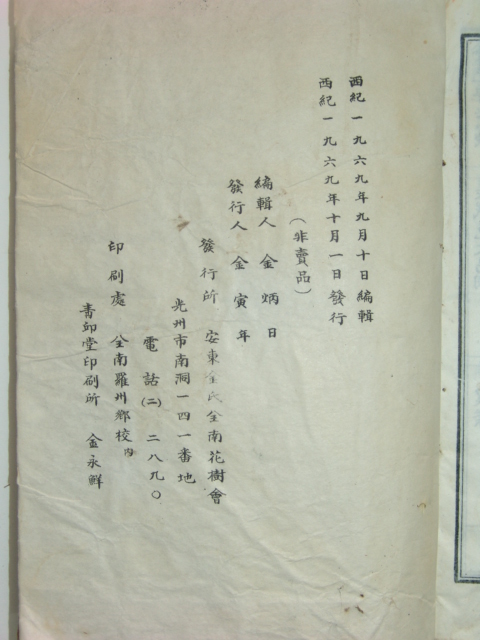 西紀一九六九年九月十日編輯
西紀一九六九年十月一日發行
(非賣品)
編輯人 金炳日
發行人 金寅年
發行所 安東金氏全南花樹會
光州市南洞一四一番地
電話(二)二八九〇
印刷處 全南羅州鄕校內
靑卯堂印刷所 金永鮮